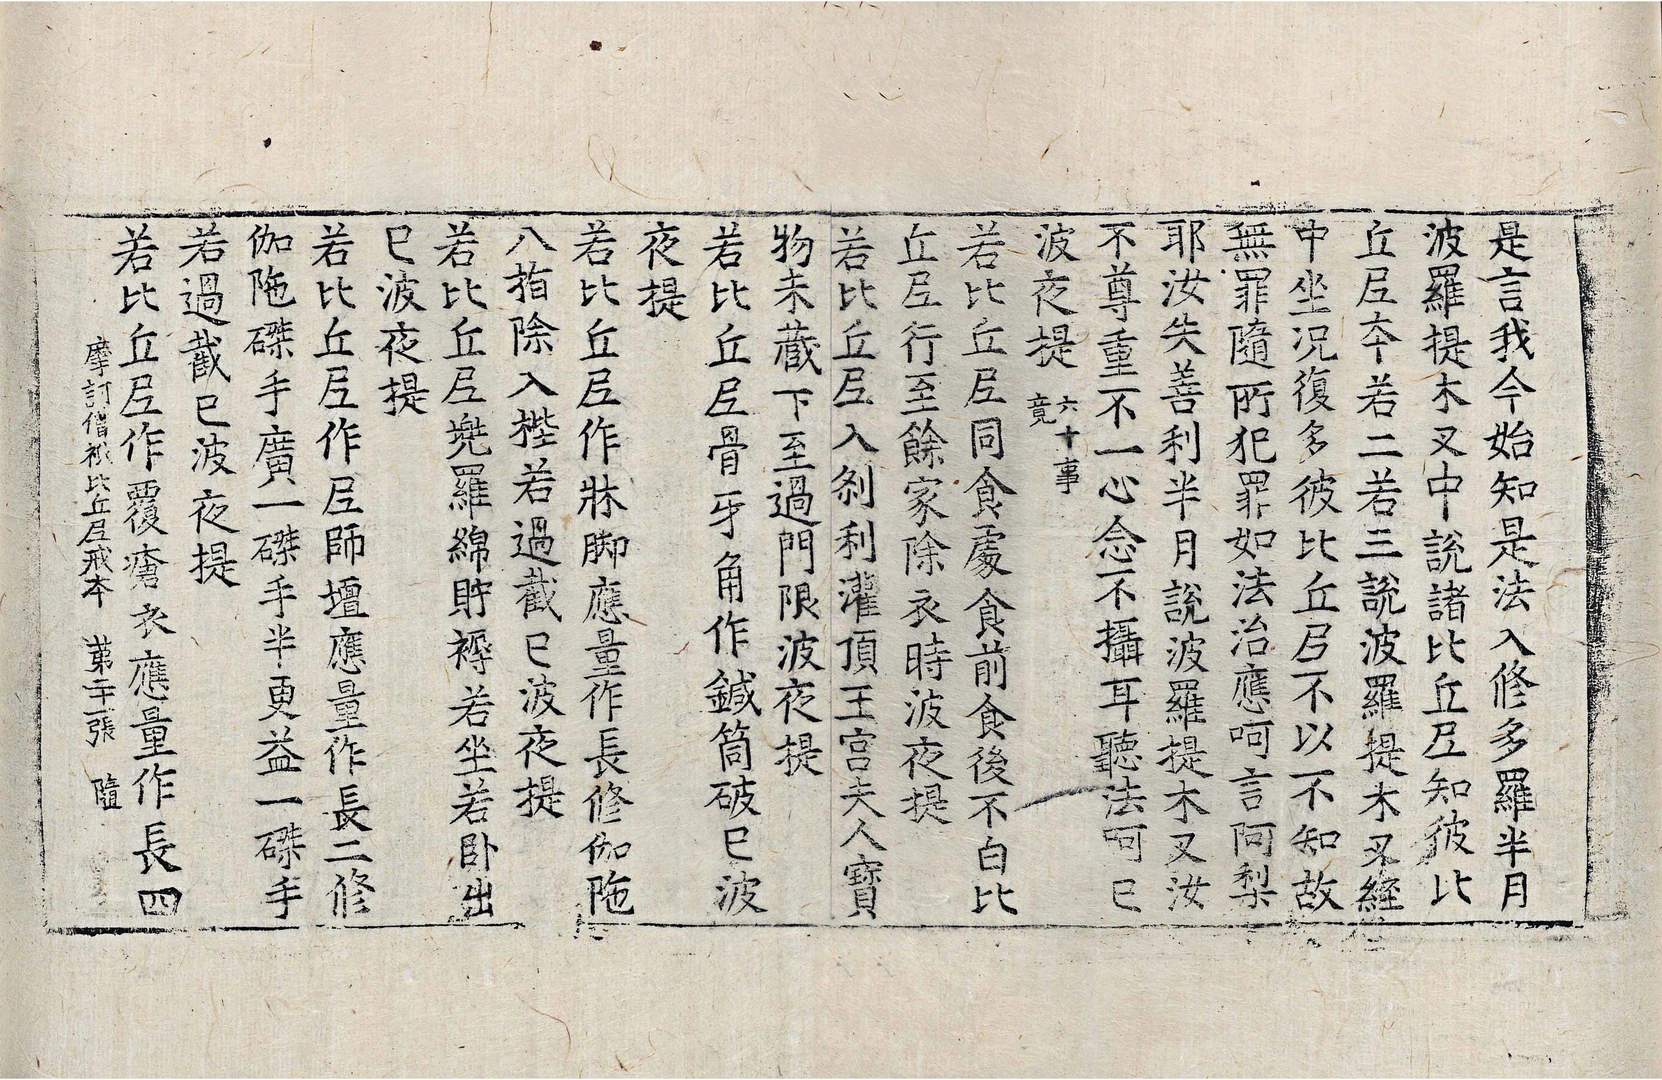 是言我今始知是法入修多羅半月
波羅提木叉中說諸比丘尼知彼比
丘尼夲若二若三說波羅提木叉經
中坐況復多彼比丘尼不以不知故
無罪隨所犯罪如法治應呵言阿梨
耶汝失善利半月說波羅提木叉汝
不尊重不一心念不攝耳聽法呵已
波夜提 六十事竟
若比丘尼同食處食前食後不白比
丘尼行至餘家除衣時波夜提
若比丘尼入剎利灌頂王宮夫人寶
物未藏下至過門限波夜提
若比丘尼骨牙角作鍼筒破已波
夜提
若比丘尼作牀脚應量作長修伽陁
八指除入梐若過截已波夜提
若比丘尼兠羅綿貯褥若坐若卧出
已波夜提
若比丘尼作尼師壇應量作長二修
伽陁磔手廣一磔手半更益一磔手
若過截已波夜提
若比丘尼作覆瘡衣應量作長四
摩訶僧祇比丘尼戒本 第二十二張 隨